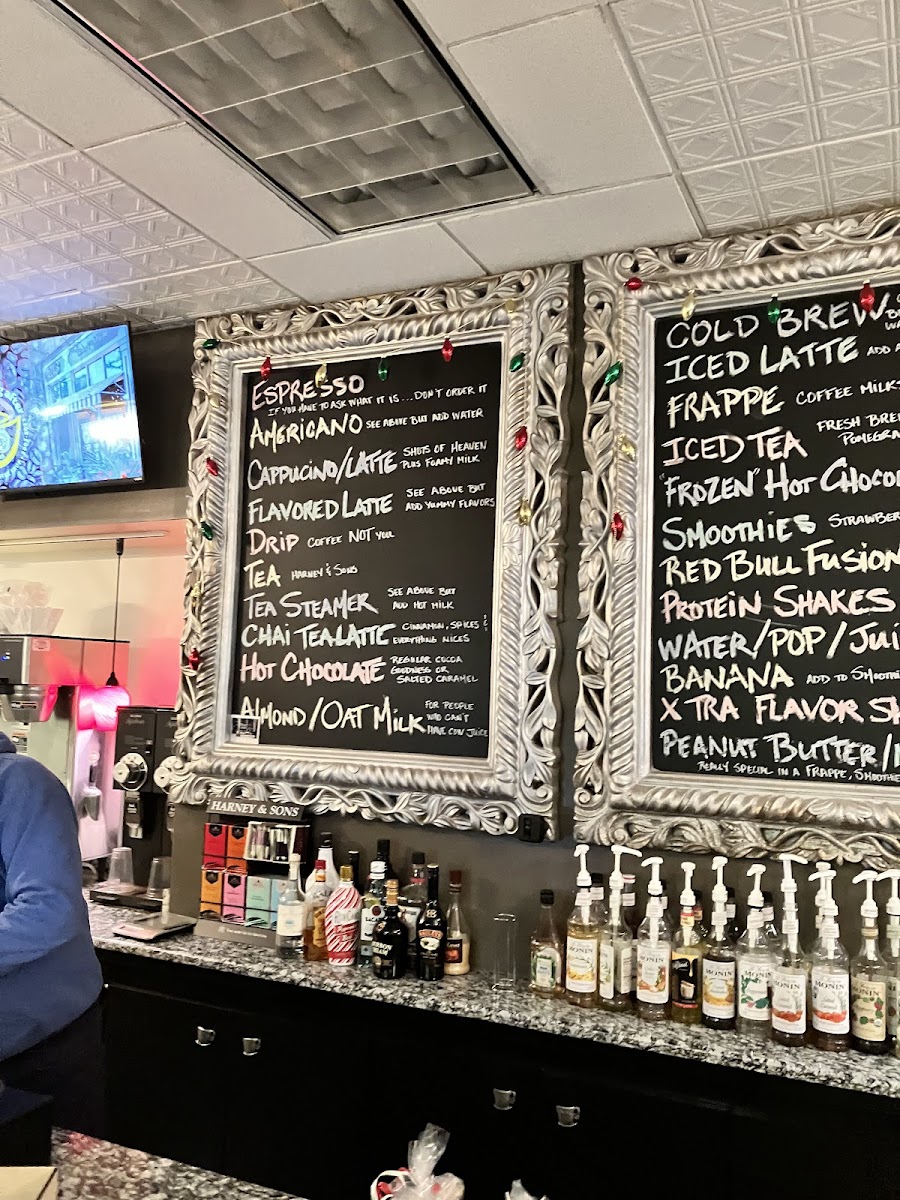 ESPRESSO
IF YOU HAVE TO ASK WHAT IT IS...DON'T ORDER IT
AMERICANO SEE ABOVE BUT ADD WATER
CAPPUCINO/LATTE SHOTS OF HEAVEN
PLUS FOAMY MILK
FLAVORED LATTE SEE ABOVE BUT
ADD YUMMY FLAVORS
DRIP COFFEE NOT YOU
TEA HARNEY & SONS
TEA STEAMER SEE ABOVE BUT
ADD HOT MILK
CHAI TEA LATTE CINNAMON, SPICES &
EVERYTHING NICES
HOT CHOCOLATE REGULAR COCOA
GOODNESS OR
SALTED CARAMEL
ALMOND/OAT MILK FOR PEOPLE
WHO CAN'T
HAVE COW JUICE
COLD BREW
ICED LATTE ADD
FRAPPE COFFEE MILK
ICED TEA FRESH BRE
POMEGRA
"FROZEN" HOT CHOCOL
SMOOTHIES STRAWBER
RED BULL FUSION
PROTEIN SHAKES
WATER/POP/JUI
BANANA ADD TO SMOOTHI
XTRA FLAVOR S
PEANUT BUTTER/
REALLY SPECIAL IN A FRAPPE, SMOOTHIE
HARNEY & SONS
BAILEYS
MONIN
MONIN
MONIN
MONIN
MONIN
MONIN
MONIN